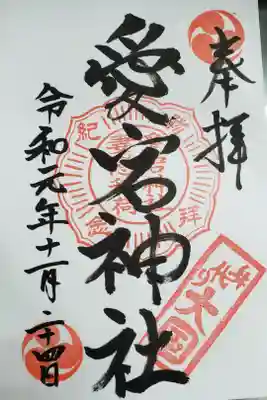 奉拝
愛宕神社
令和元年十一月二十四日
参拝
紀念